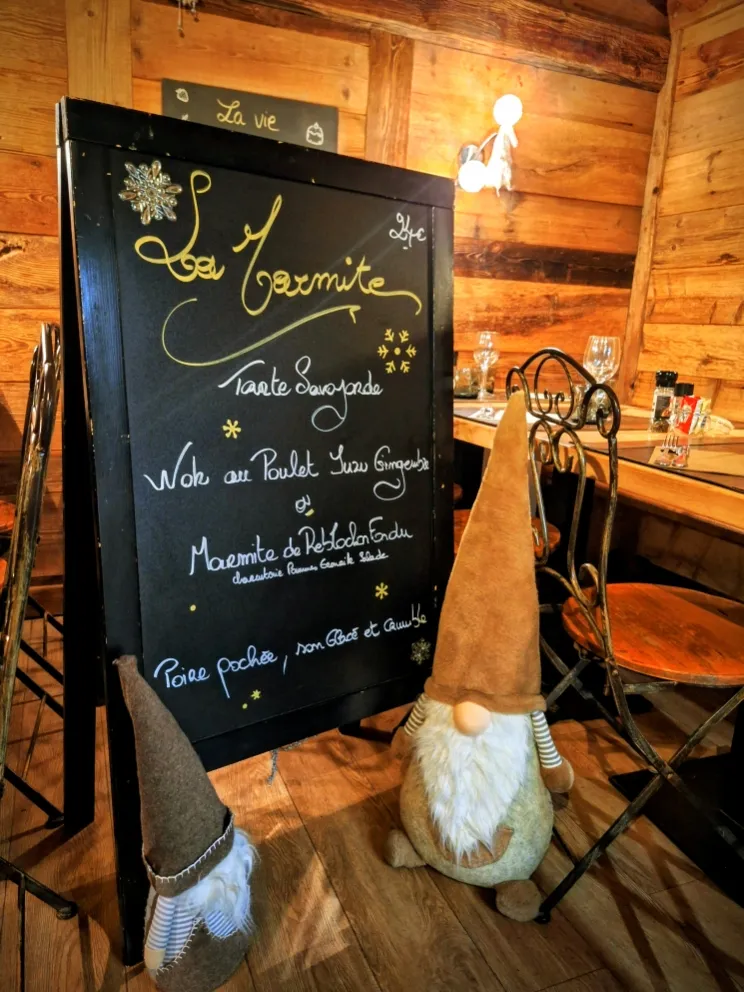 La vie
La Marmite
24€
Tarte Savoyarde
Wok au Poulet Yuzu Gingembre
ou
Marmite de Reblochon Fondu
charcuterie Pommes Grenaille Salade
Poire pochée, son Glacé et Crumble